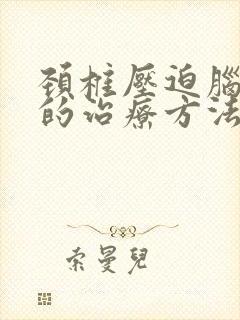 頚椎壓迫腦
的治療方法
索曼兒